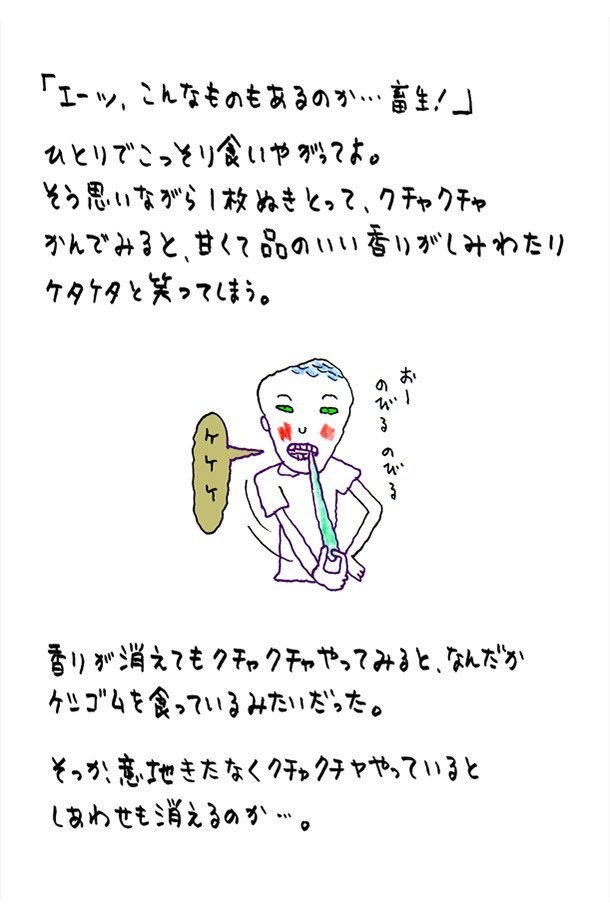 「エーッ、こんなものもあるのか…畜生！」
ひとりでこっそり食いやがってよ。
そう思いながら1枚ぬきとって、クチャクチャ
かんでみると、甘くて品のいい香りがしみわたり
ケタケタと笑ってしまう。
おー
のびる のびる
ケケケ
香りが消えてもクチャクチャやってみると、なんだか
ケシゴムを食っているみたいだった。
そっか、意地きたなくクチャクチャやっていると
しあわせも消えるのか…。